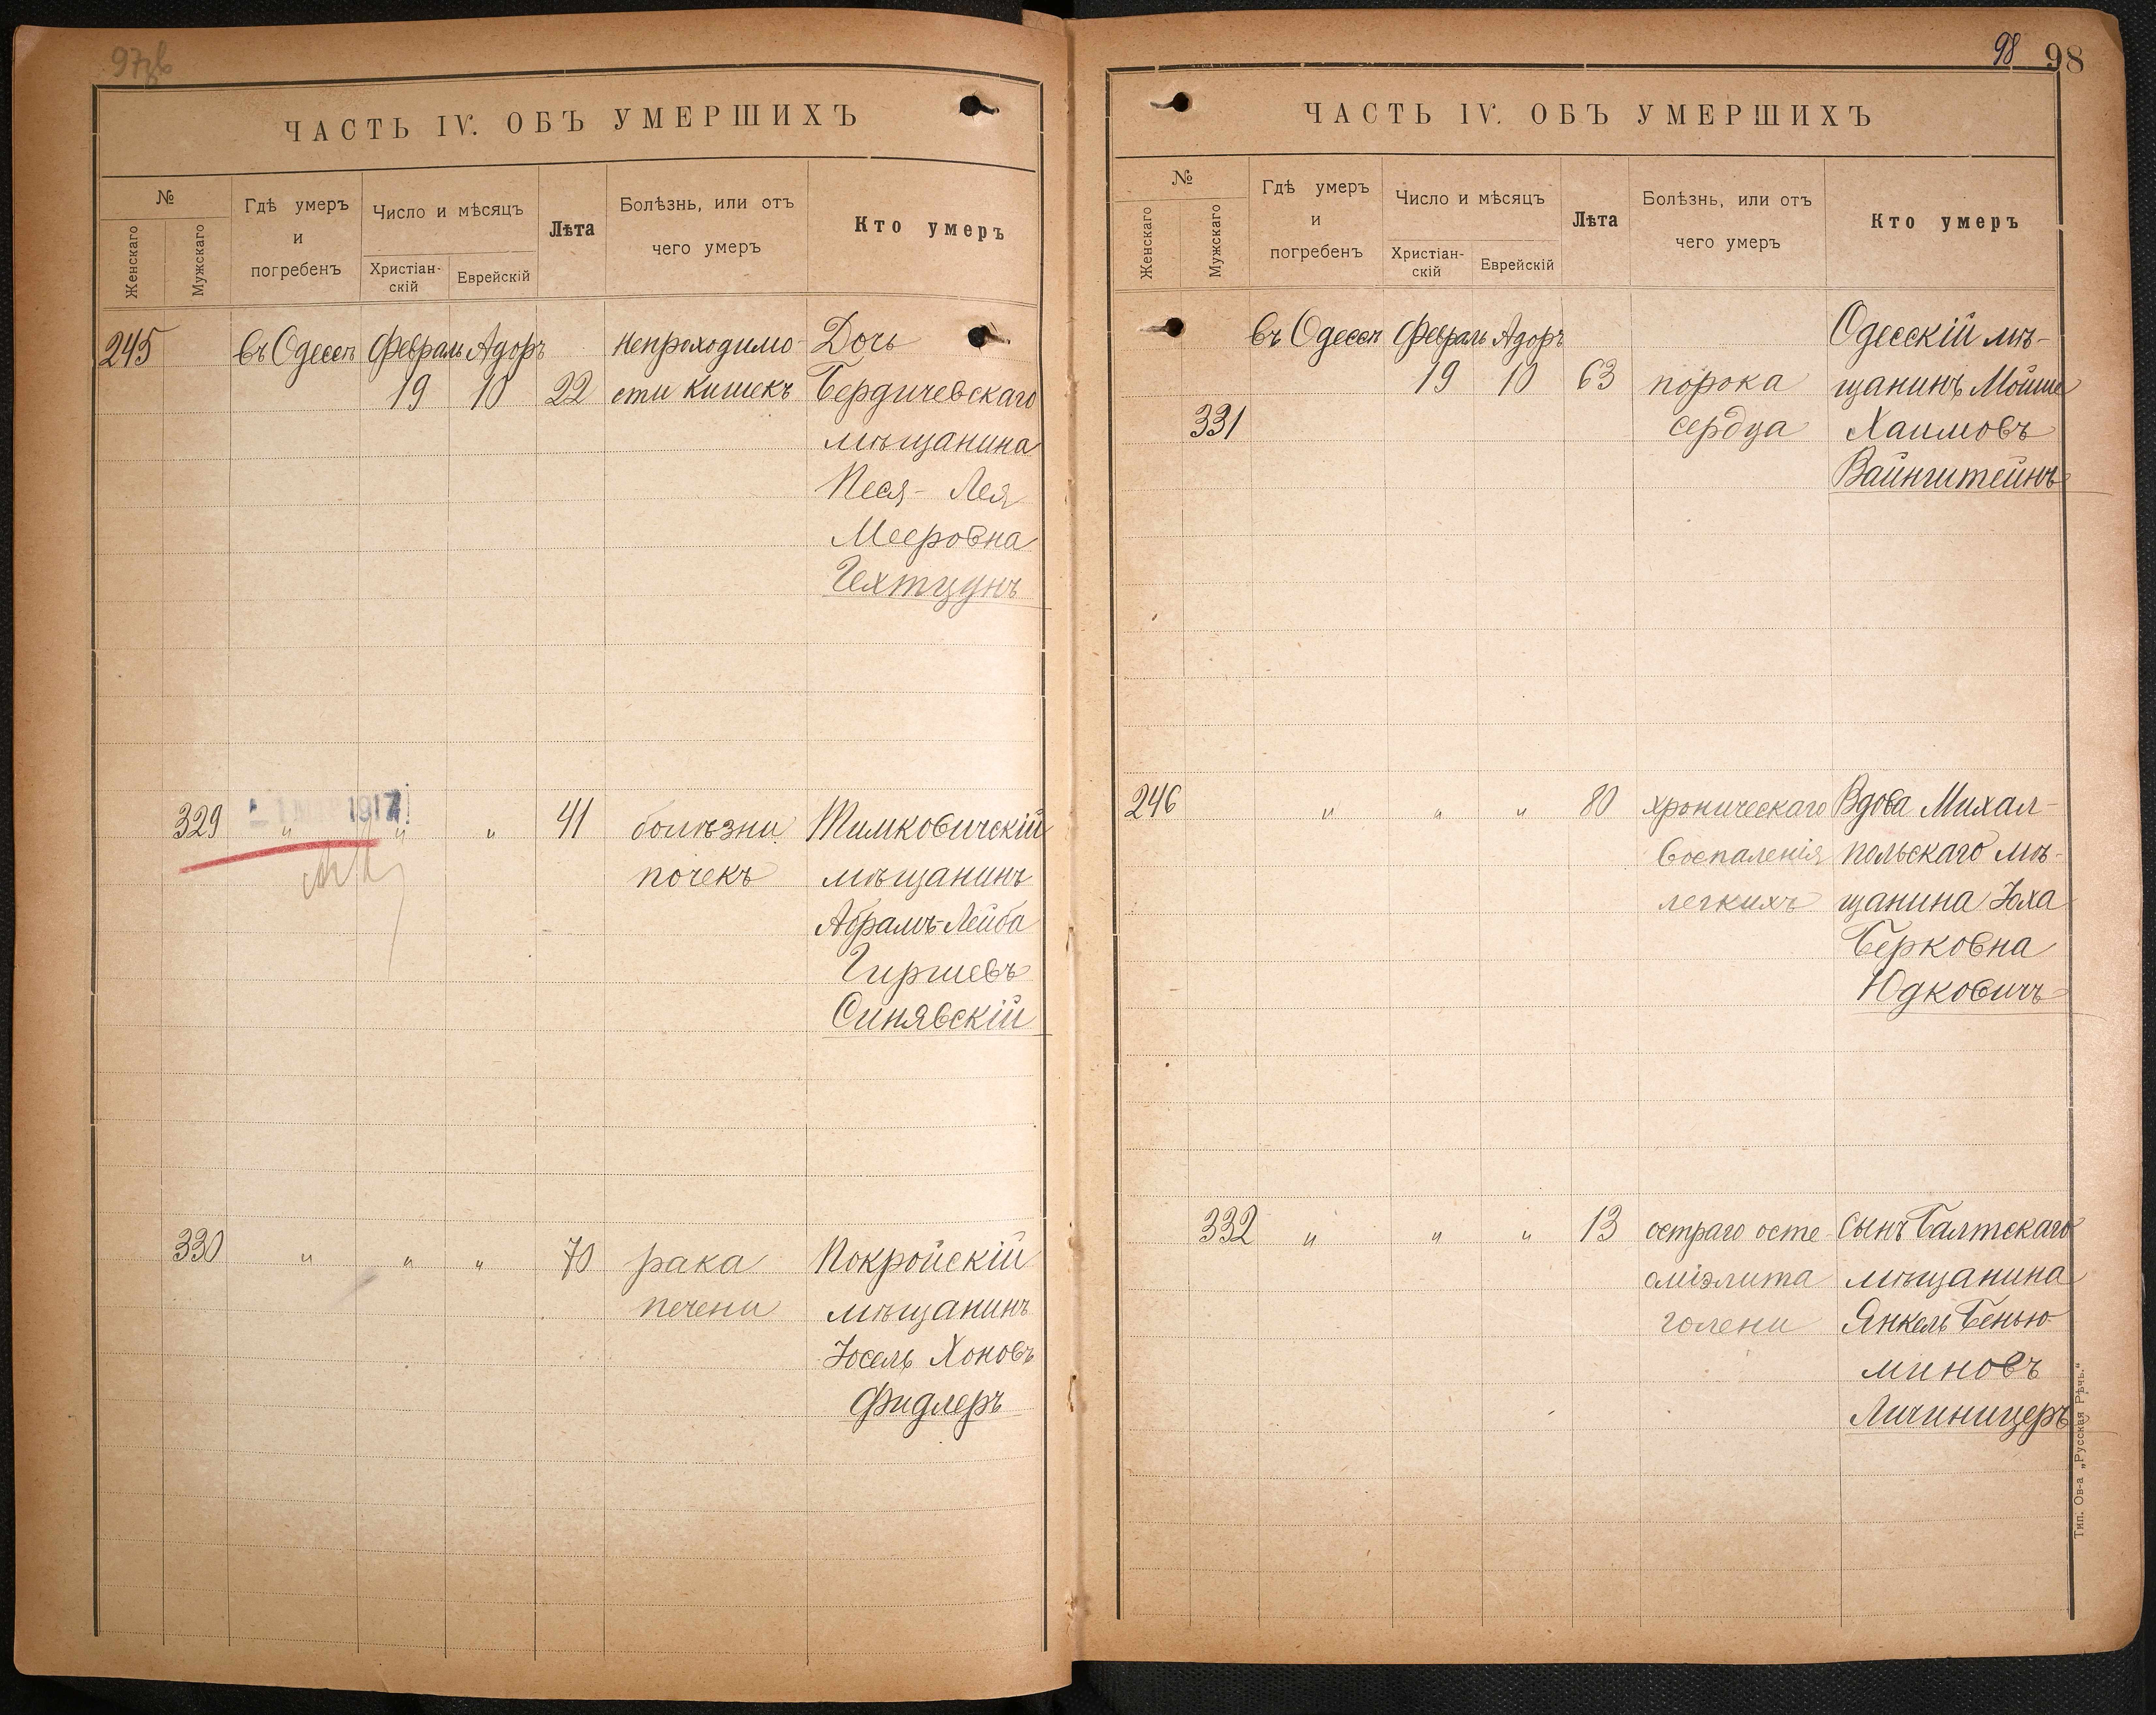 ЧАСТЬ IV. ОБЪ УМЕРШИХЪ
№
Женскаго
Мужскаго
Гдѣ умеръ
и
погребенъ
Число и мѣсяцъ
Христіан-
скій
Еврейскій
Лѣта
Болѣзнь, или отъ
чего умеръ
Кто умеръ
245 въ Одессѣ Февраль Адоръ Непроходимо- Дочь
19 10 22 сти кишекъ Бердичевскаго
мѣщанина
Песя- Лея
Мееровна
Гехтцунъ
1917
329 " " " 41 болѣзни Тимковичскій
почекъ мѣщанинъ
Абрамъ-Лейба
Гиршевъ
Синявскій
330 " " " 70 рака Покройскій
печени мѣщанинъ
Іосель Хоновъ
Фидлеръ
98 98
ЧАСТЬ IV. ОБЪ УМЕРШИХЪ
№
Женскаго
Мужскаго
Гдѣ умеръ
и
погребенъ
Число и мѣсяцъ
Христіан-
скій
Еврейскій
Лѣта
Болѣзнь, или отъ
чего умеръ
Кто умеръ
въ Одессѣ Февраль Адоръ Одесскій мѣ-
19 10 63 порока щанинъ Мойше
331 сердца Хаимовъ
Вайнштейнъ
246 " " " 80 хроническаго Вдова Михал-
воспаленія польскаго мѣ-
легкихъ щанина Юха
Берковна
Юдковичъ
332 " " " 13 остраго осте- Сынъ Балтскаго
оміэлита мѣщанина
голени Янкель Бенью-
миновъ
Личиницеръ
Тип. Ов-а „Русская Рѣчь."